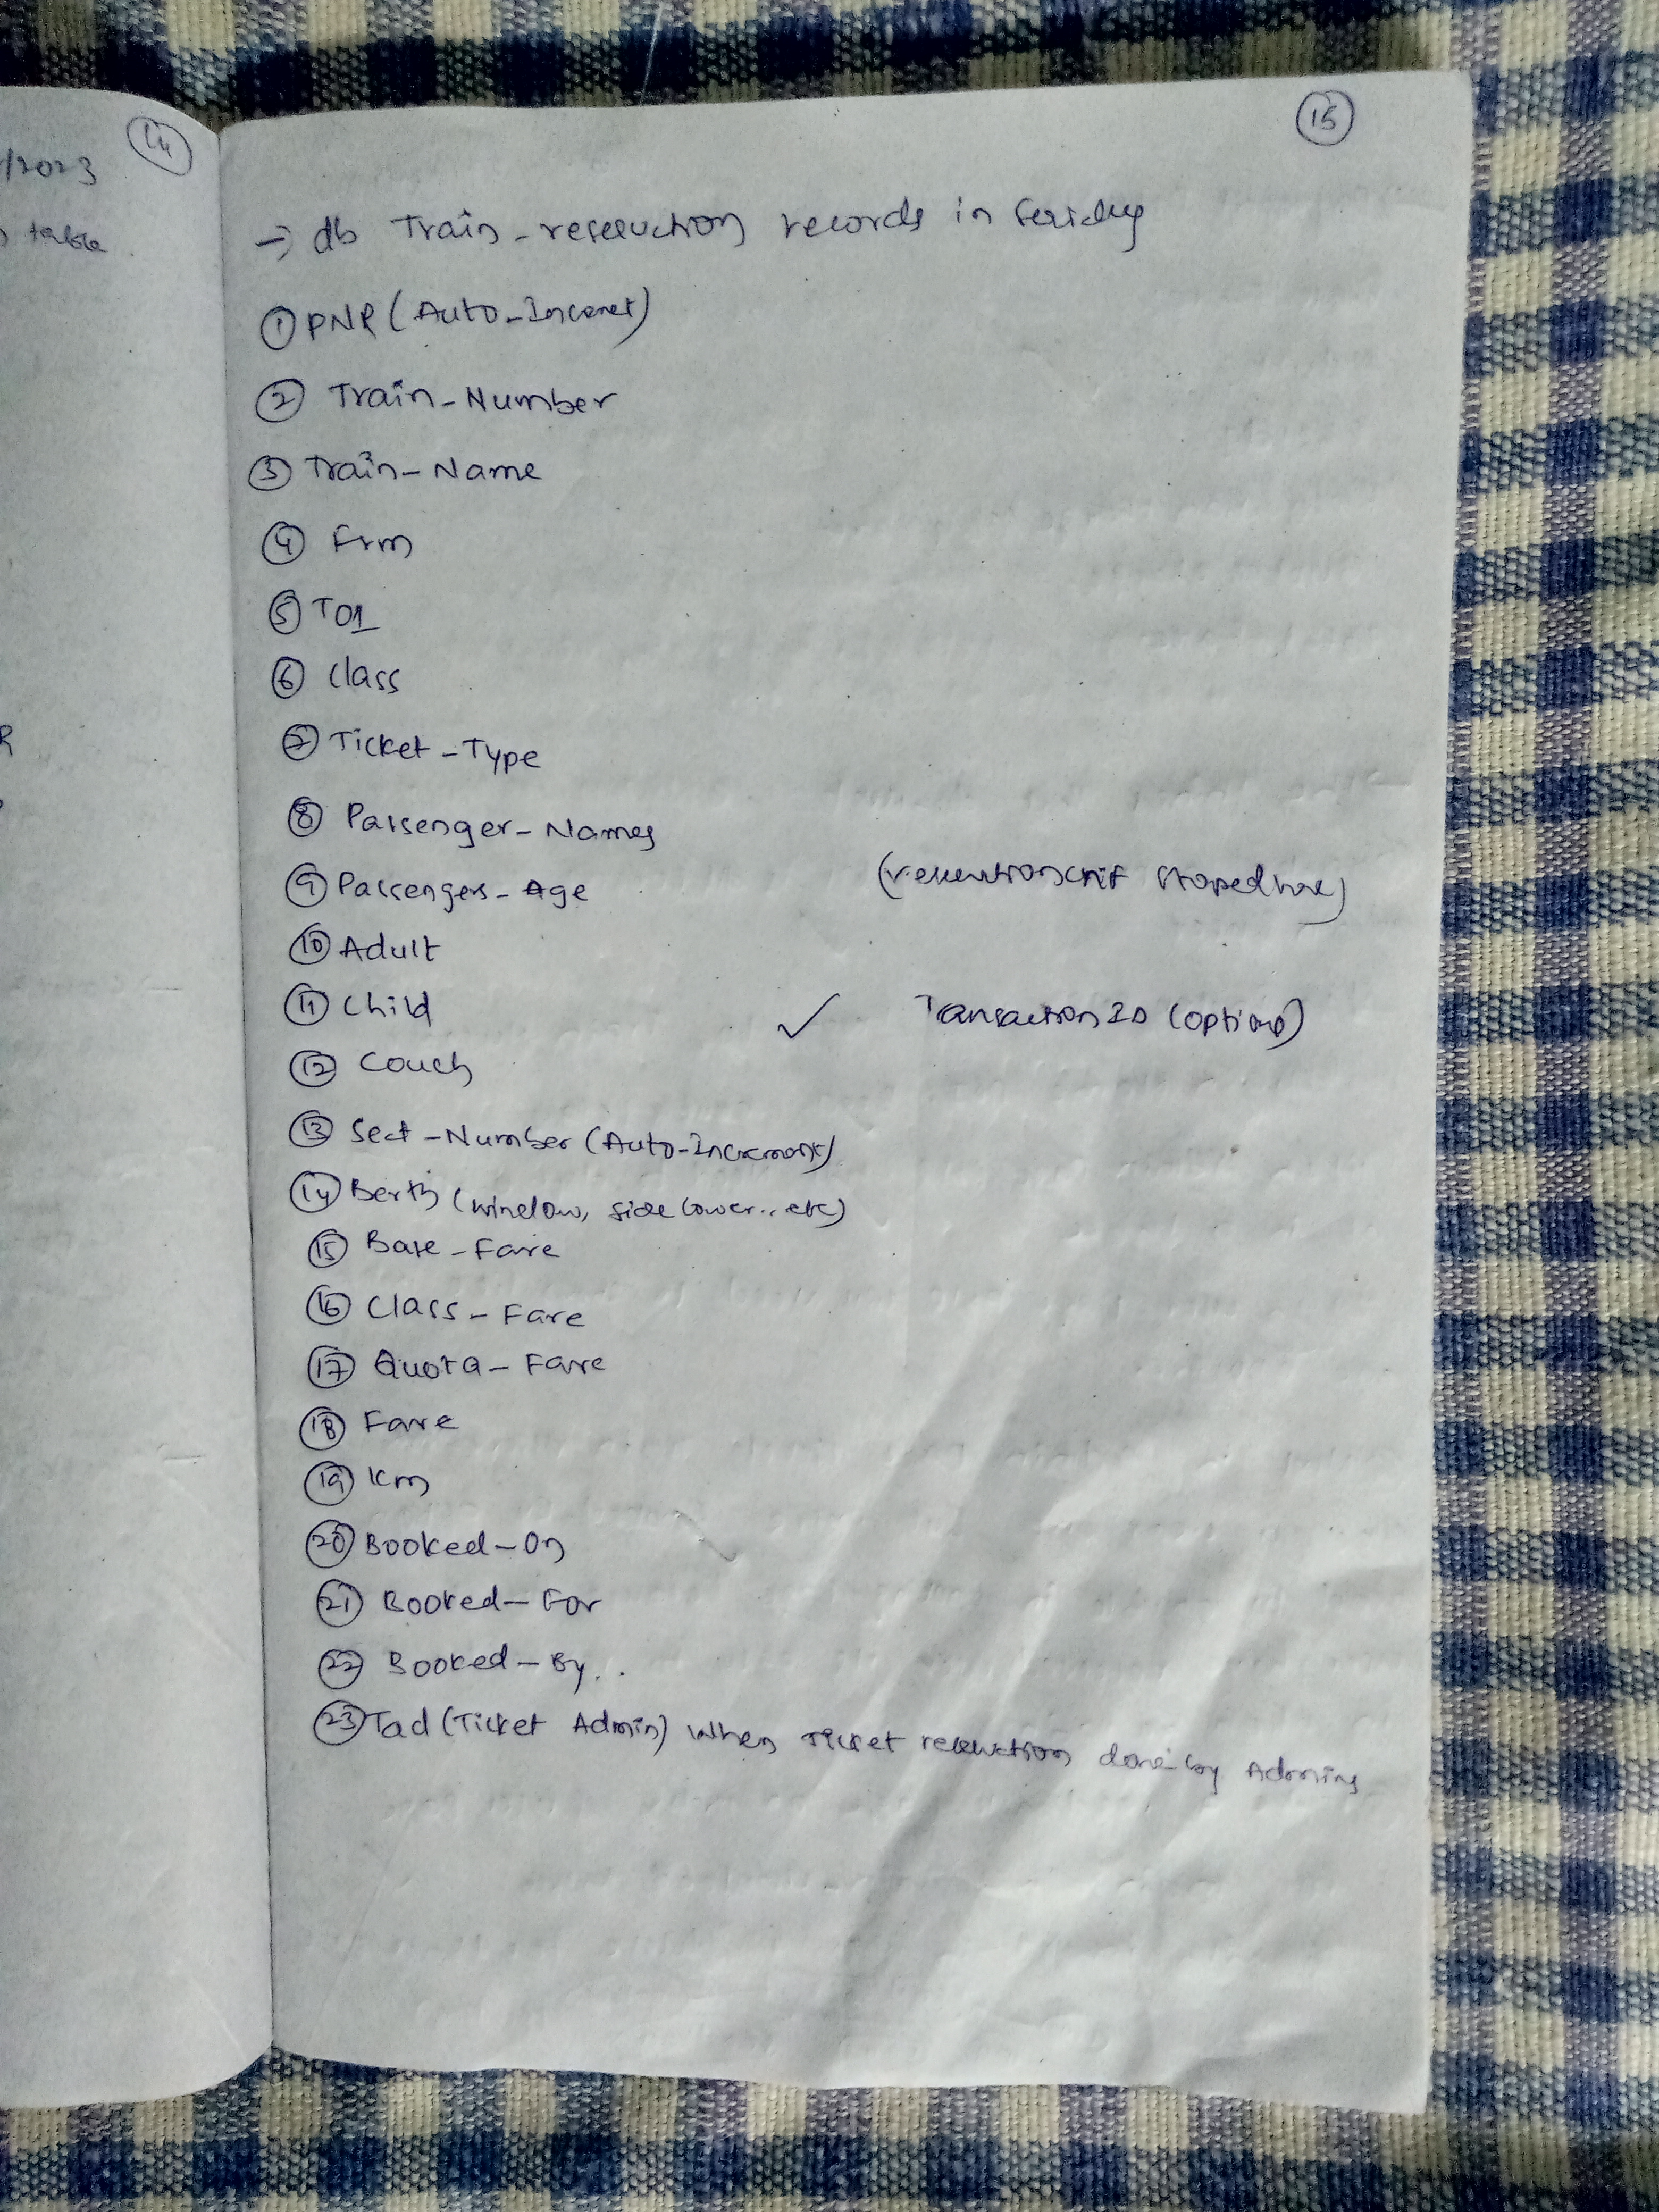 14
/2023
table
15
→ db Train-reservation records in
① PNR (Auto-Increment)
② Train-Number
③ Train-Name
④ Frm
⑤ TO1
⑥ Class
⑦ Ticket-Type
⑧ Passenger-Names
⑨ Passengers-Age
( stoped here)
⑩ Adult
⑪ Child
✓ Transaction ID (optional)
⑫ Couch
⑬ Seat-Number (Auto-Increment)
⑭ Berth (window, side lower.. etc)
⑮ Base-Fare
⑯ Class-Fare
⑰ Quota-Fare
⑱ Fare
⑲ Km
⑳ Booked-On
㉑ Booked-For
㉒ Booked-By..
㉓ Tad (Ticket Admin) when Ticket reservation done by Admins